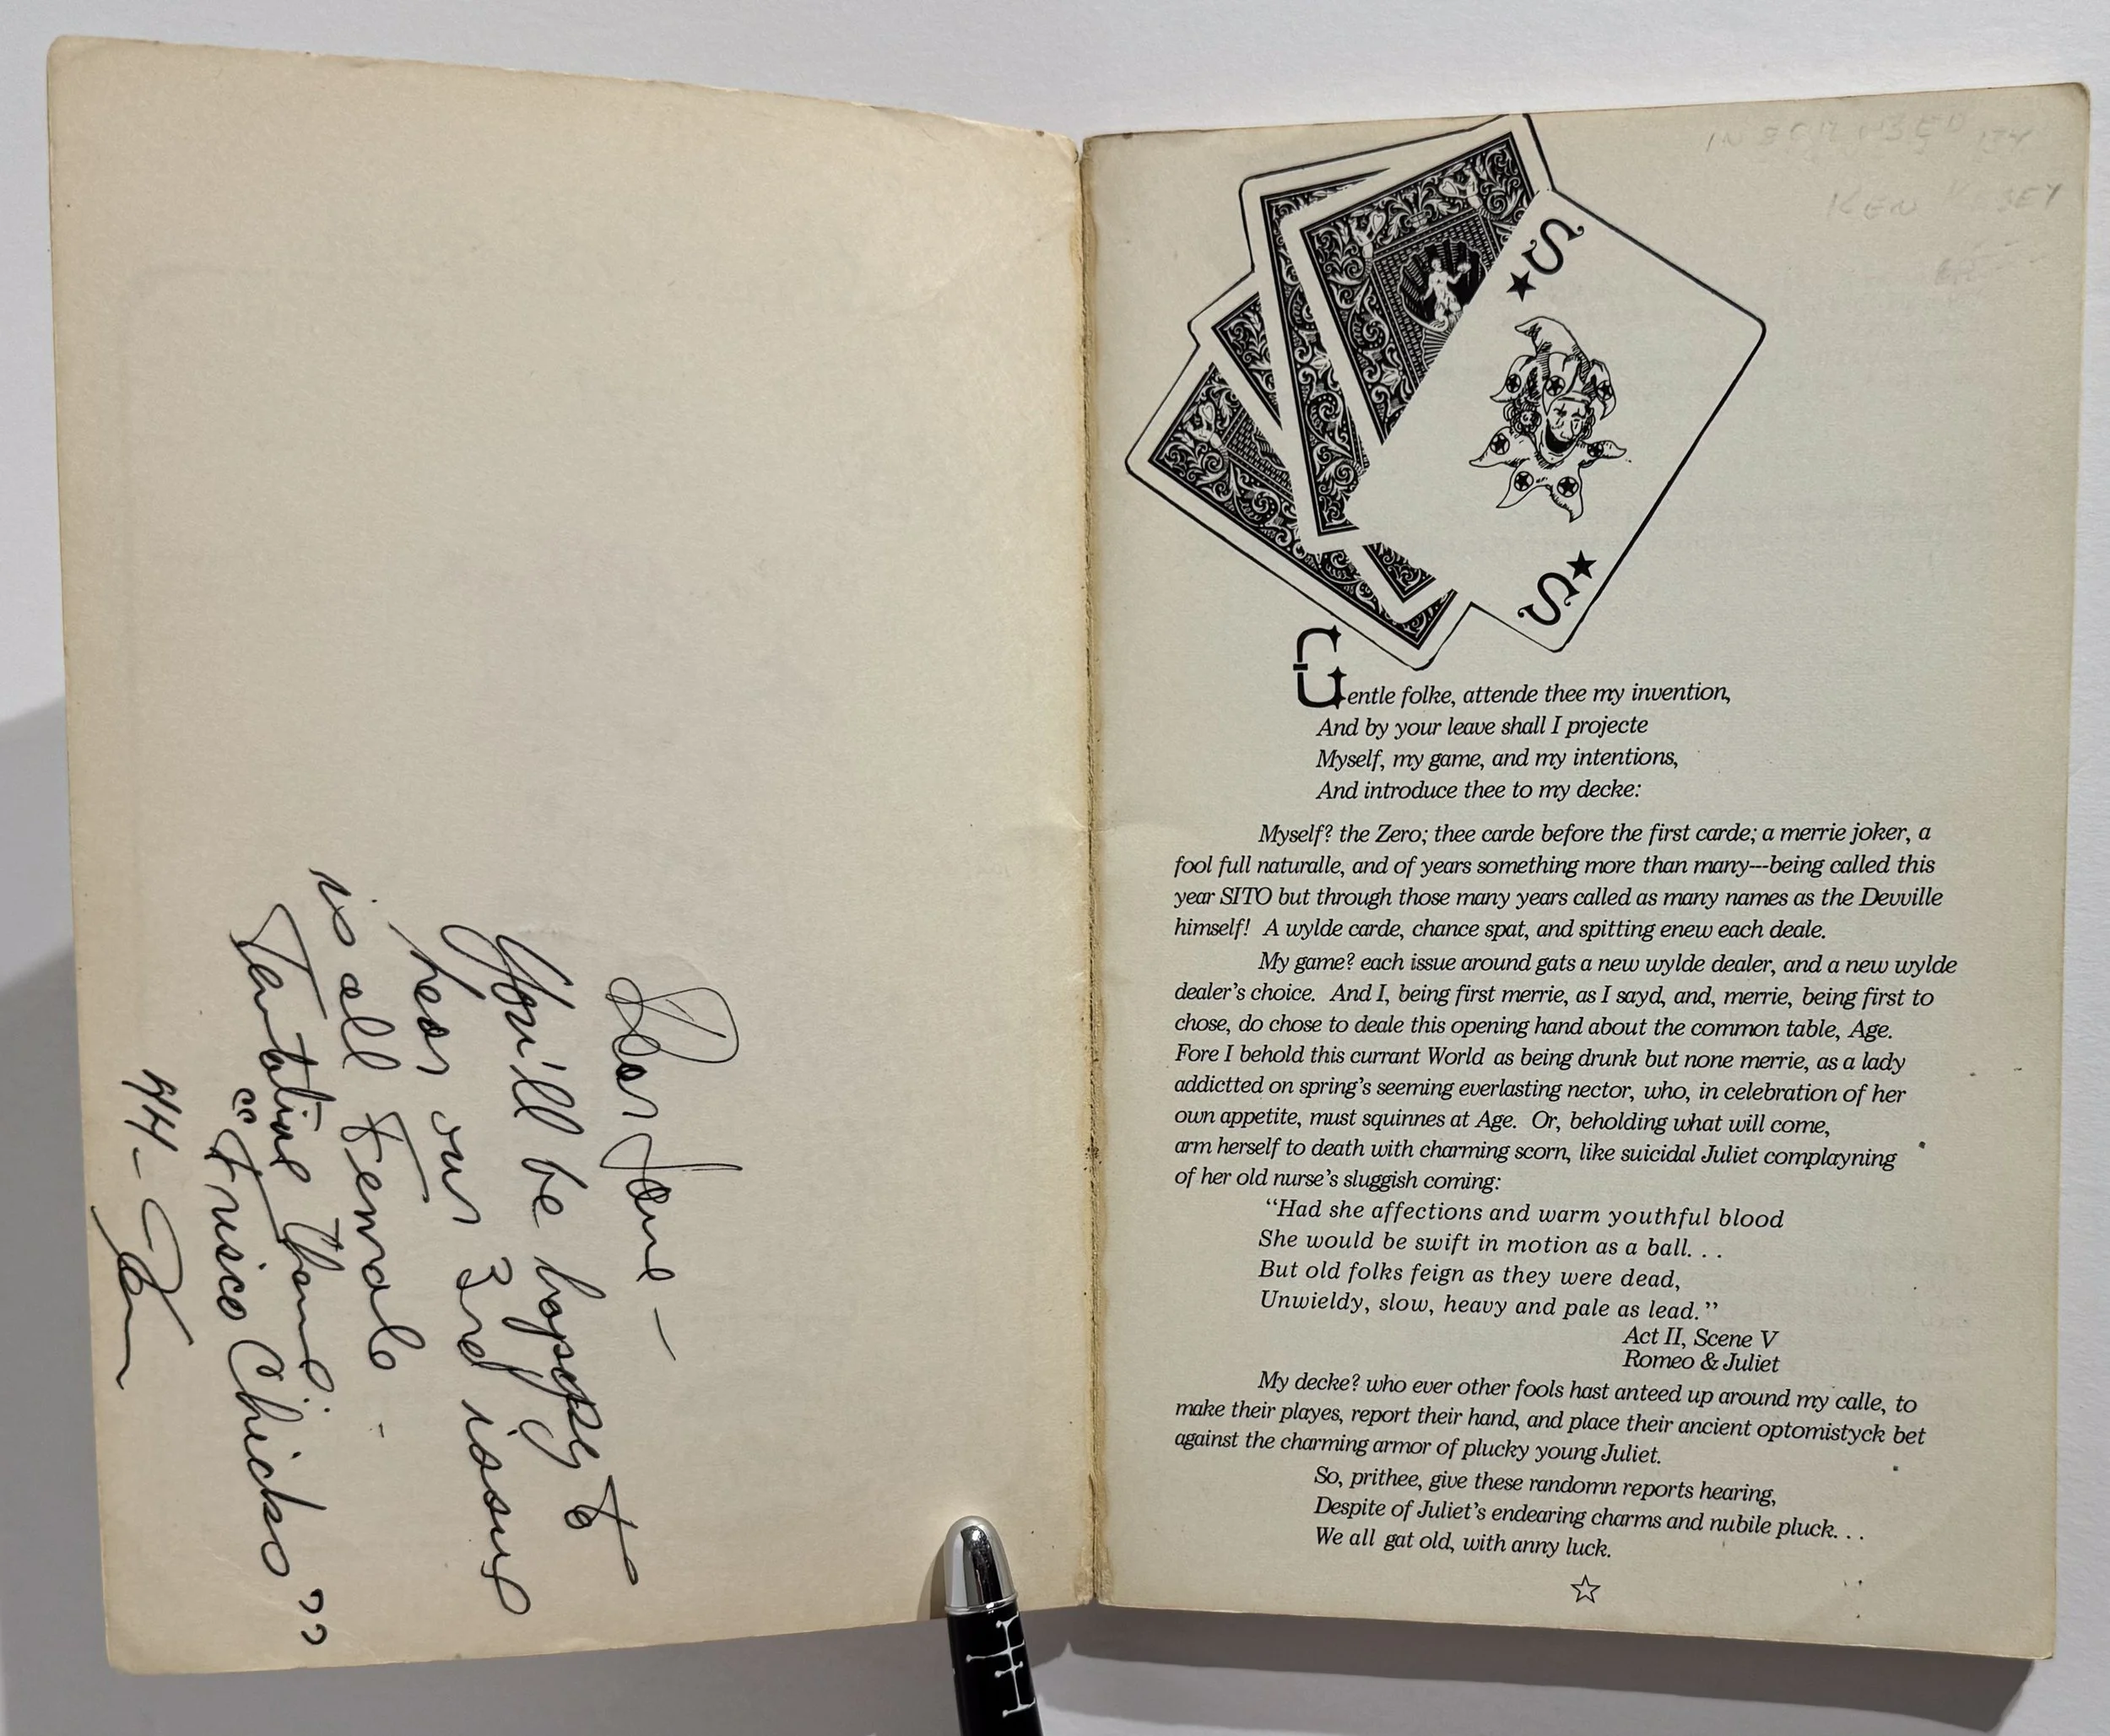 Dear Jane —
You'll be happy to
hear our 3rd issue
is all Female -
Tentative Theme:
"Frisco Chicks"
INSCRIBED BY
KEN
S
S
Gentle folke, attende thee my invention,
And by your leave shall I projecte
Myself, my game, and my intentions,
And introduce thee to my decke:
Myself? the Zero; thee carde before the first carde; a merrie joker, a
fool full naturalle, and of years something more than many---being called this
year SITO but through those many years called as many names as the Devville
himself! A wylde carde, chance spat, and spitting enew each deale.
My game? each issue around gats a new wylde dealer, and a new wylde
dealer's choice. And I, being first merrie, as I sayd, and, merrie, being first to
chose, do chose to deale this opening hand about the common table, Age.
Fore I behold this currant World as being drunk but none merrie, as a lady
addictted on spring's seeming everlasting nector, who, in celebration of her
own appetite, must squinnes at Age. Or, beholding what will come,
arm herself to death with charming scorn, like suicidal Juliet complayning
of her old nurse's sluggish coming:
"Had she affections and warm youthful blood
She would be swift in motion as a ball. . .
But old folks feign as they were dead,
Unwieldy, slow, heavy and pale as lead."
Act II, Scene V
Romeo & Juliet
My decke? who ever other fools hast anteed up around my calle, to
make their playes, report their hand, and place their ancient optomistyck bet
against the charming armor of plucky young Juliet.
So, prithee, give these randomn reports hearing,
Despite of Juliet's endearing charms and nubile pluck. . .
We all gat old, with anny luck.